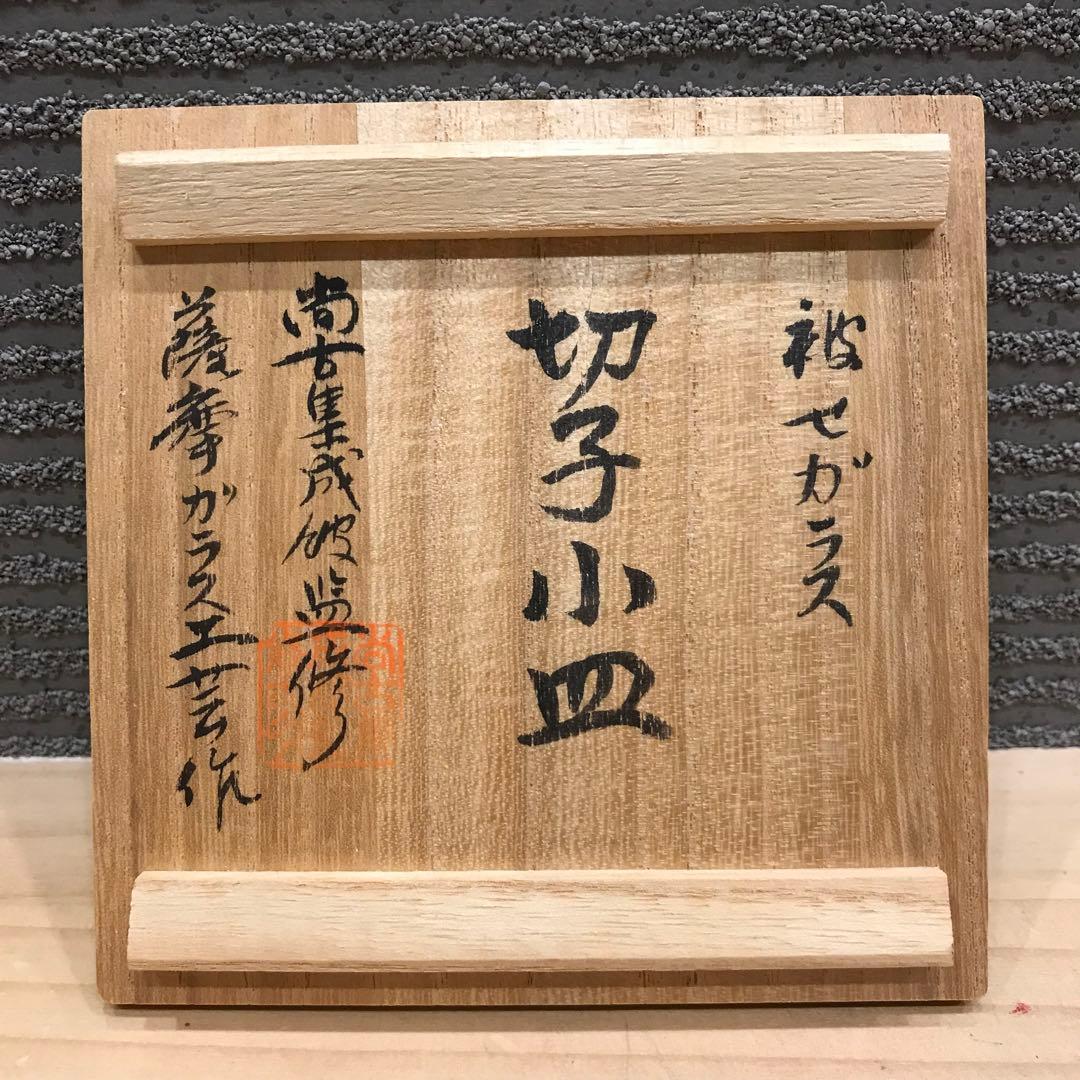 被せガラス
切子小皿
尚古集成館監修
薩摩ガラス工芸作